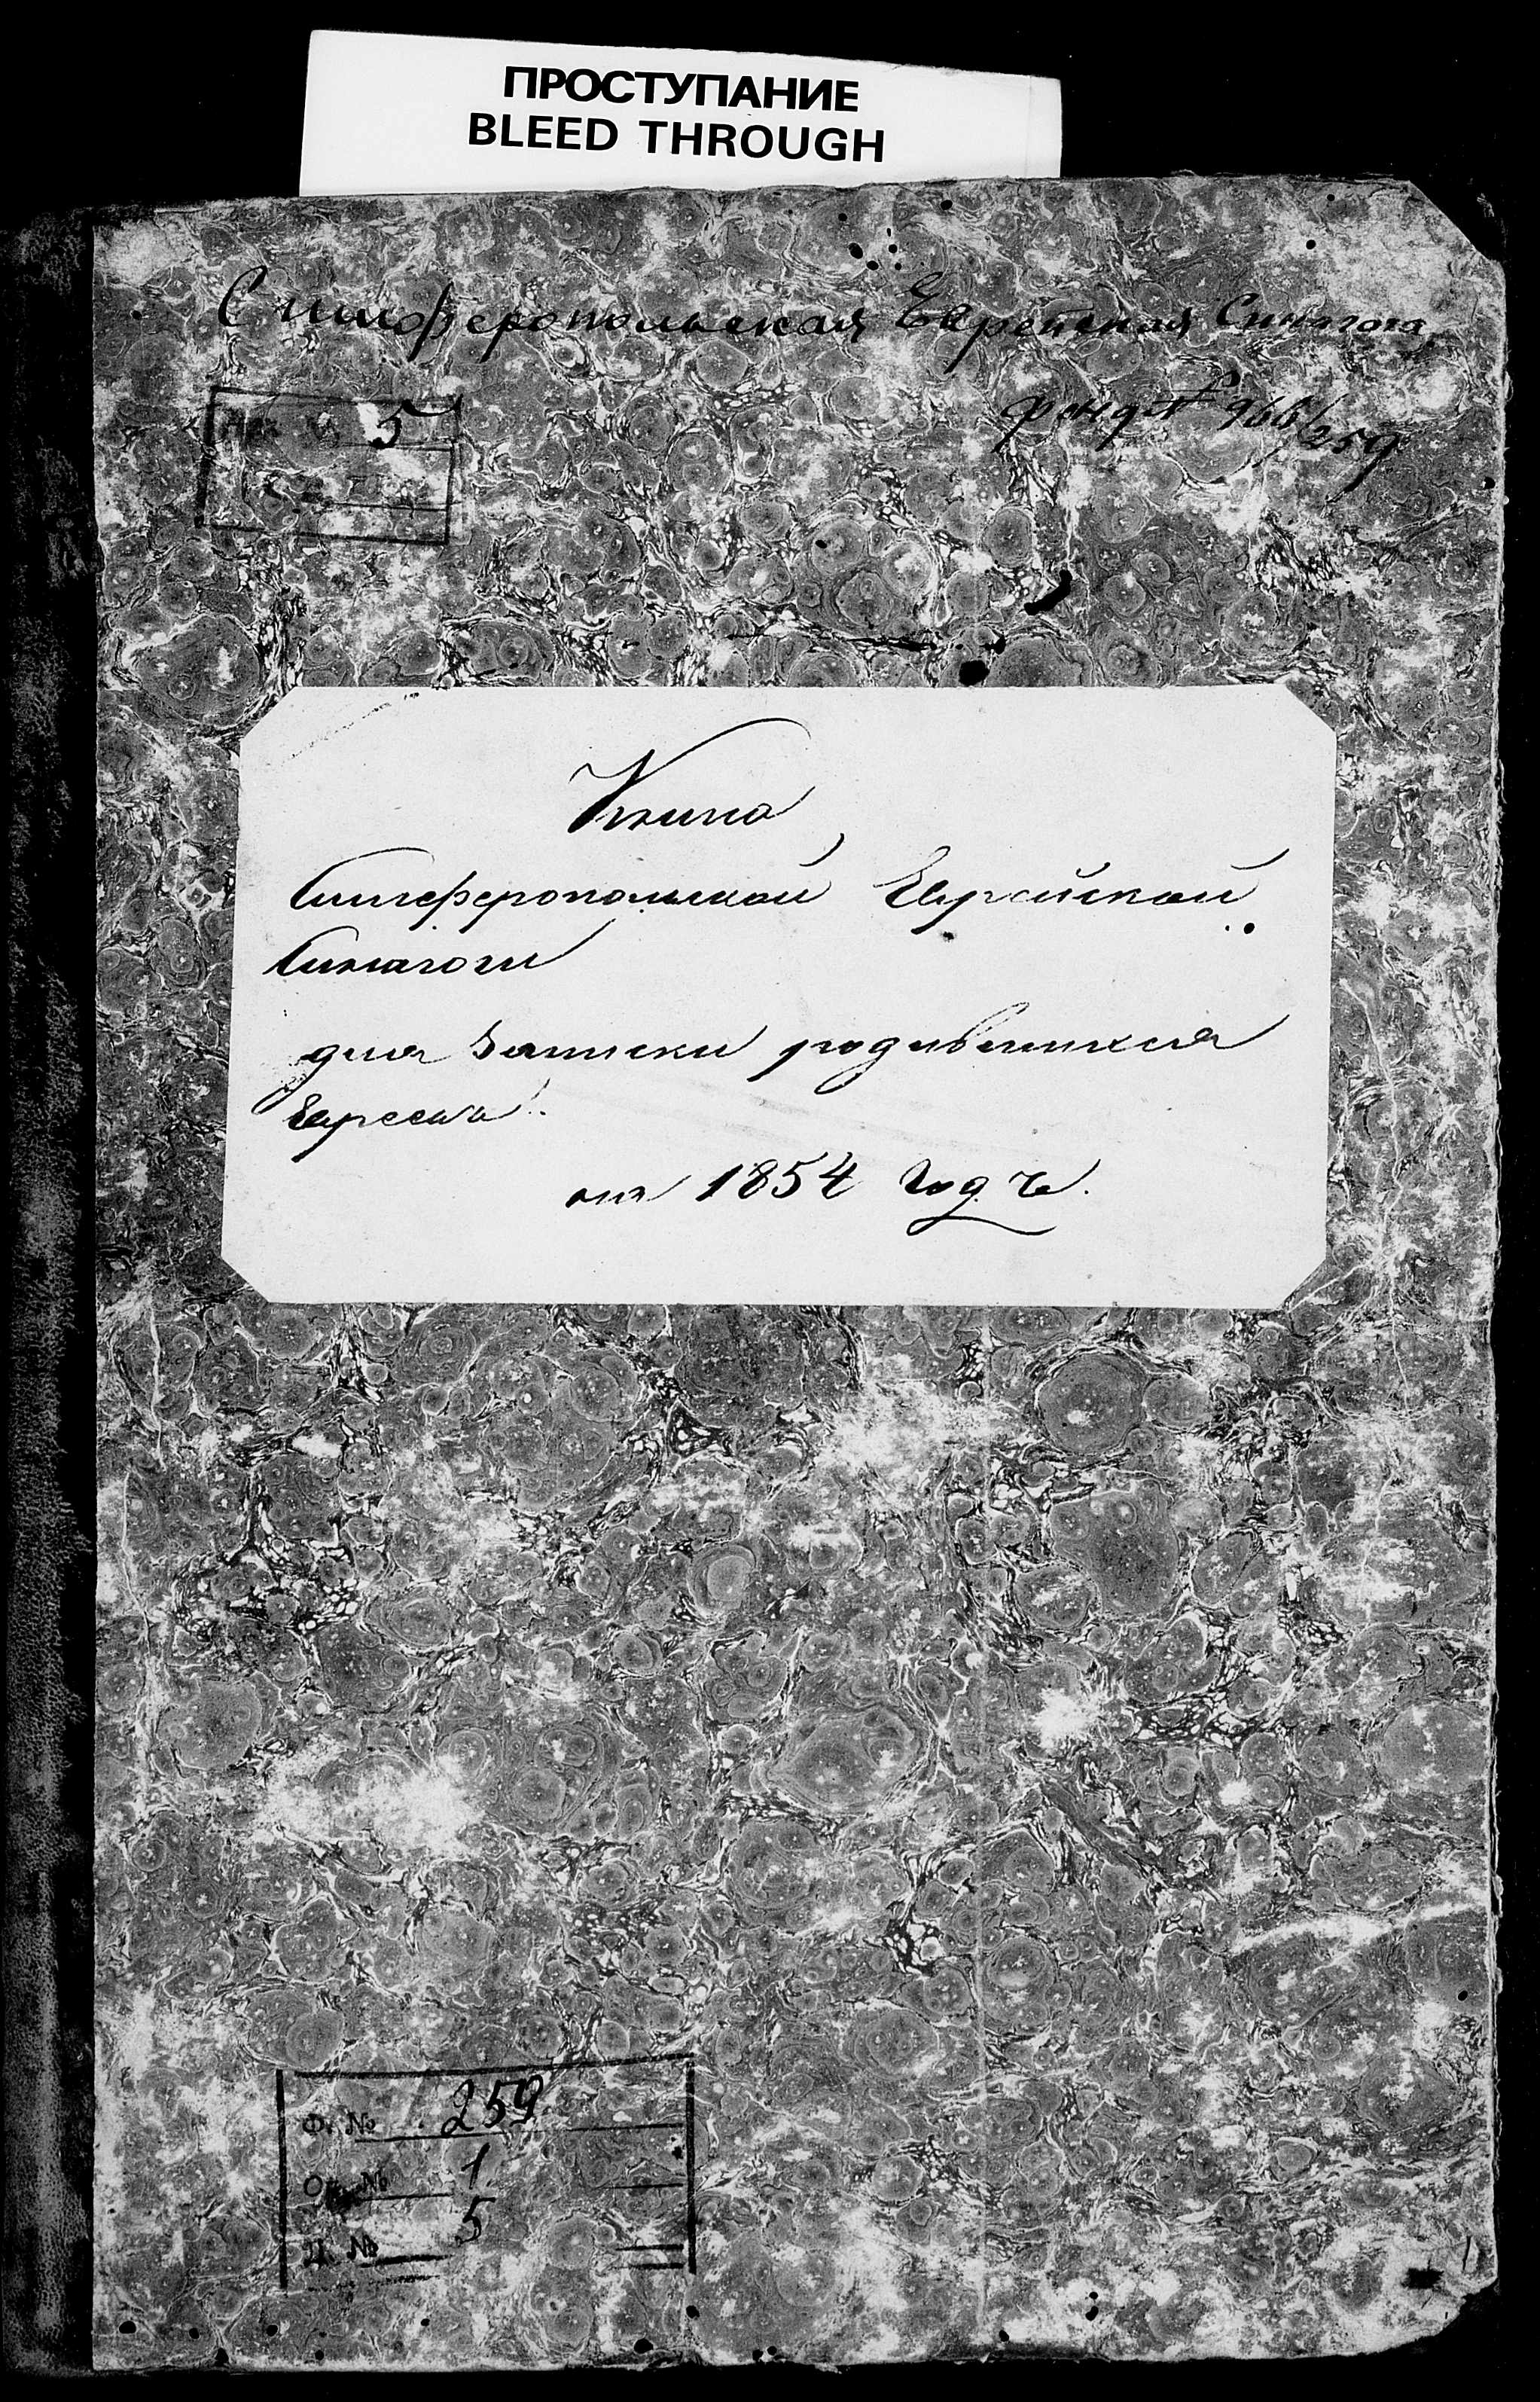 ПРОСТУПАНИЕ
BLEED THROUGH
Симферопольская Еврейская Синагога
фонд № 966/259
5
Книга
Симферопольской Еврейской
Синагоги
для записки родившихся
Евреевъ
на 1854 годъ.
Ф. № 259
Оп. № 1
Д. № 5